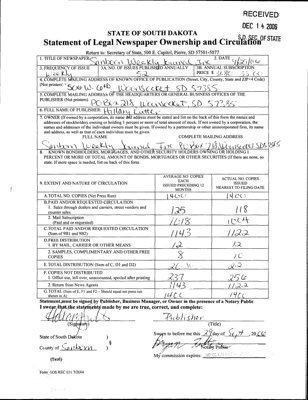 RECEIVED
DEC 14 2006
S.D. SEC. OF STATE
STATE OF SOUTH DAKOTA
Statement of Legal Newspaper Ownership and Circulation
Return to: Secretary of State, 500 E. Capitol, Pierre, SD 57501-5077
1. TITLE OF NEWSPAPER Sanborn Weekly Journal, Inc 2. DATE
3. FREQUENCY OF ISSUE 3A. NO. OF ISSUES PUBLISHED ANNUALLY 3B. ANNUAL SUBSCRIPTION
Weekly 52 PRICE $
4. COMPLETE MAILING ADDRESS OF KNOWN OFFICE OF PUBLICATION (Street, City, County, State and ZIP+4 Code)
(Not printers) Woonsocket SD 57385
5. COMPLETE MAILING ADDRESS OF THE HEADQUARTERS OR GENERAL BUSINESS OFFICES OF THE
PUBLISHER (Not printers) PO Box 218, Woonsocket, SD 57385
6. FULL NAME OF PUBLISHER: Hillary
7. OWNER (If owned by a corporation, its name and address must be stated and also on the back of this form the names and
addresses of stockholders owning or holding 1 percent or more of total amount of stock. If not owned by a corporation, the
names and addresses of the individual owners must be given. If owned by a partnership or other unincorporated firm, its name
and address, as well as that of each individual must be given.
FULL NAME COMPLETE MAILING ADDRESS
Sanborn Weekly Journal, Inc PO Box 218 Woonsocket SD 57385
8. KNOWN BONDHOLDERS, MORTGAGES, AND OTHER SECURITY HOLDERS OWNING OR HOLDING 1
PERCENT OR MORE OF TOTAL AMOUNT OF BONDS, MORTGAGES OR OTHER SECURITIES (If there are none, so
state. If more space is needed, list on back of this form.
9. EXTENT AND NATURE OF CIRCULATION AVERAGE NO. COPIES EACH ISSUED PRECEDING 12 MONTH ACTUAL NO. COPIES ISSUED NEAREST TO FILING DATE
A. TOTAL NO. COPIES (Net Press Run) 1400 1400
B. PAID AND/OR REQUESTED CIRCULATION
1. Sales through dealers and carriers, street vendors and
counter sales 125 118
2. Mail Subscription
(Paid and or requested) 1018 1004
C. TOTAL PAID AND/OR REQUESTED CIRCULATION
(Sum of 9B1 and 9B2) 1143 1122
D. FREE DISTRIBUTION
1. BY MAIL, CARRIER OR OTHER MEANS 12 12
2. SAMPLES, COMPLIMENTARY AND OTHER FREE
COPIES 8 10
E. TOTAL DISTRIBUTION (Sum of C, D1 and D2)
F. COPIES NOT DISTRIBUTED
1. Office use, left over, unaccounted, spoiled after printing 237 256
2. Return from News Agents 1143 1122
G. TOTAL (Sum of E, F1 and F2 - Should equal net press run
shown in A) 1400 1400
Statement must be signed by Publisher, Business Manager, or Owner in the presence of a Notary Public
I swear that the statements made by me are true, correct, and complete:
Publisher
(Signature) (Title)
State of South Dakota ) Sworn to before me this 29 day of Sept
County of Sanborn )
(Seal) My commission expires: